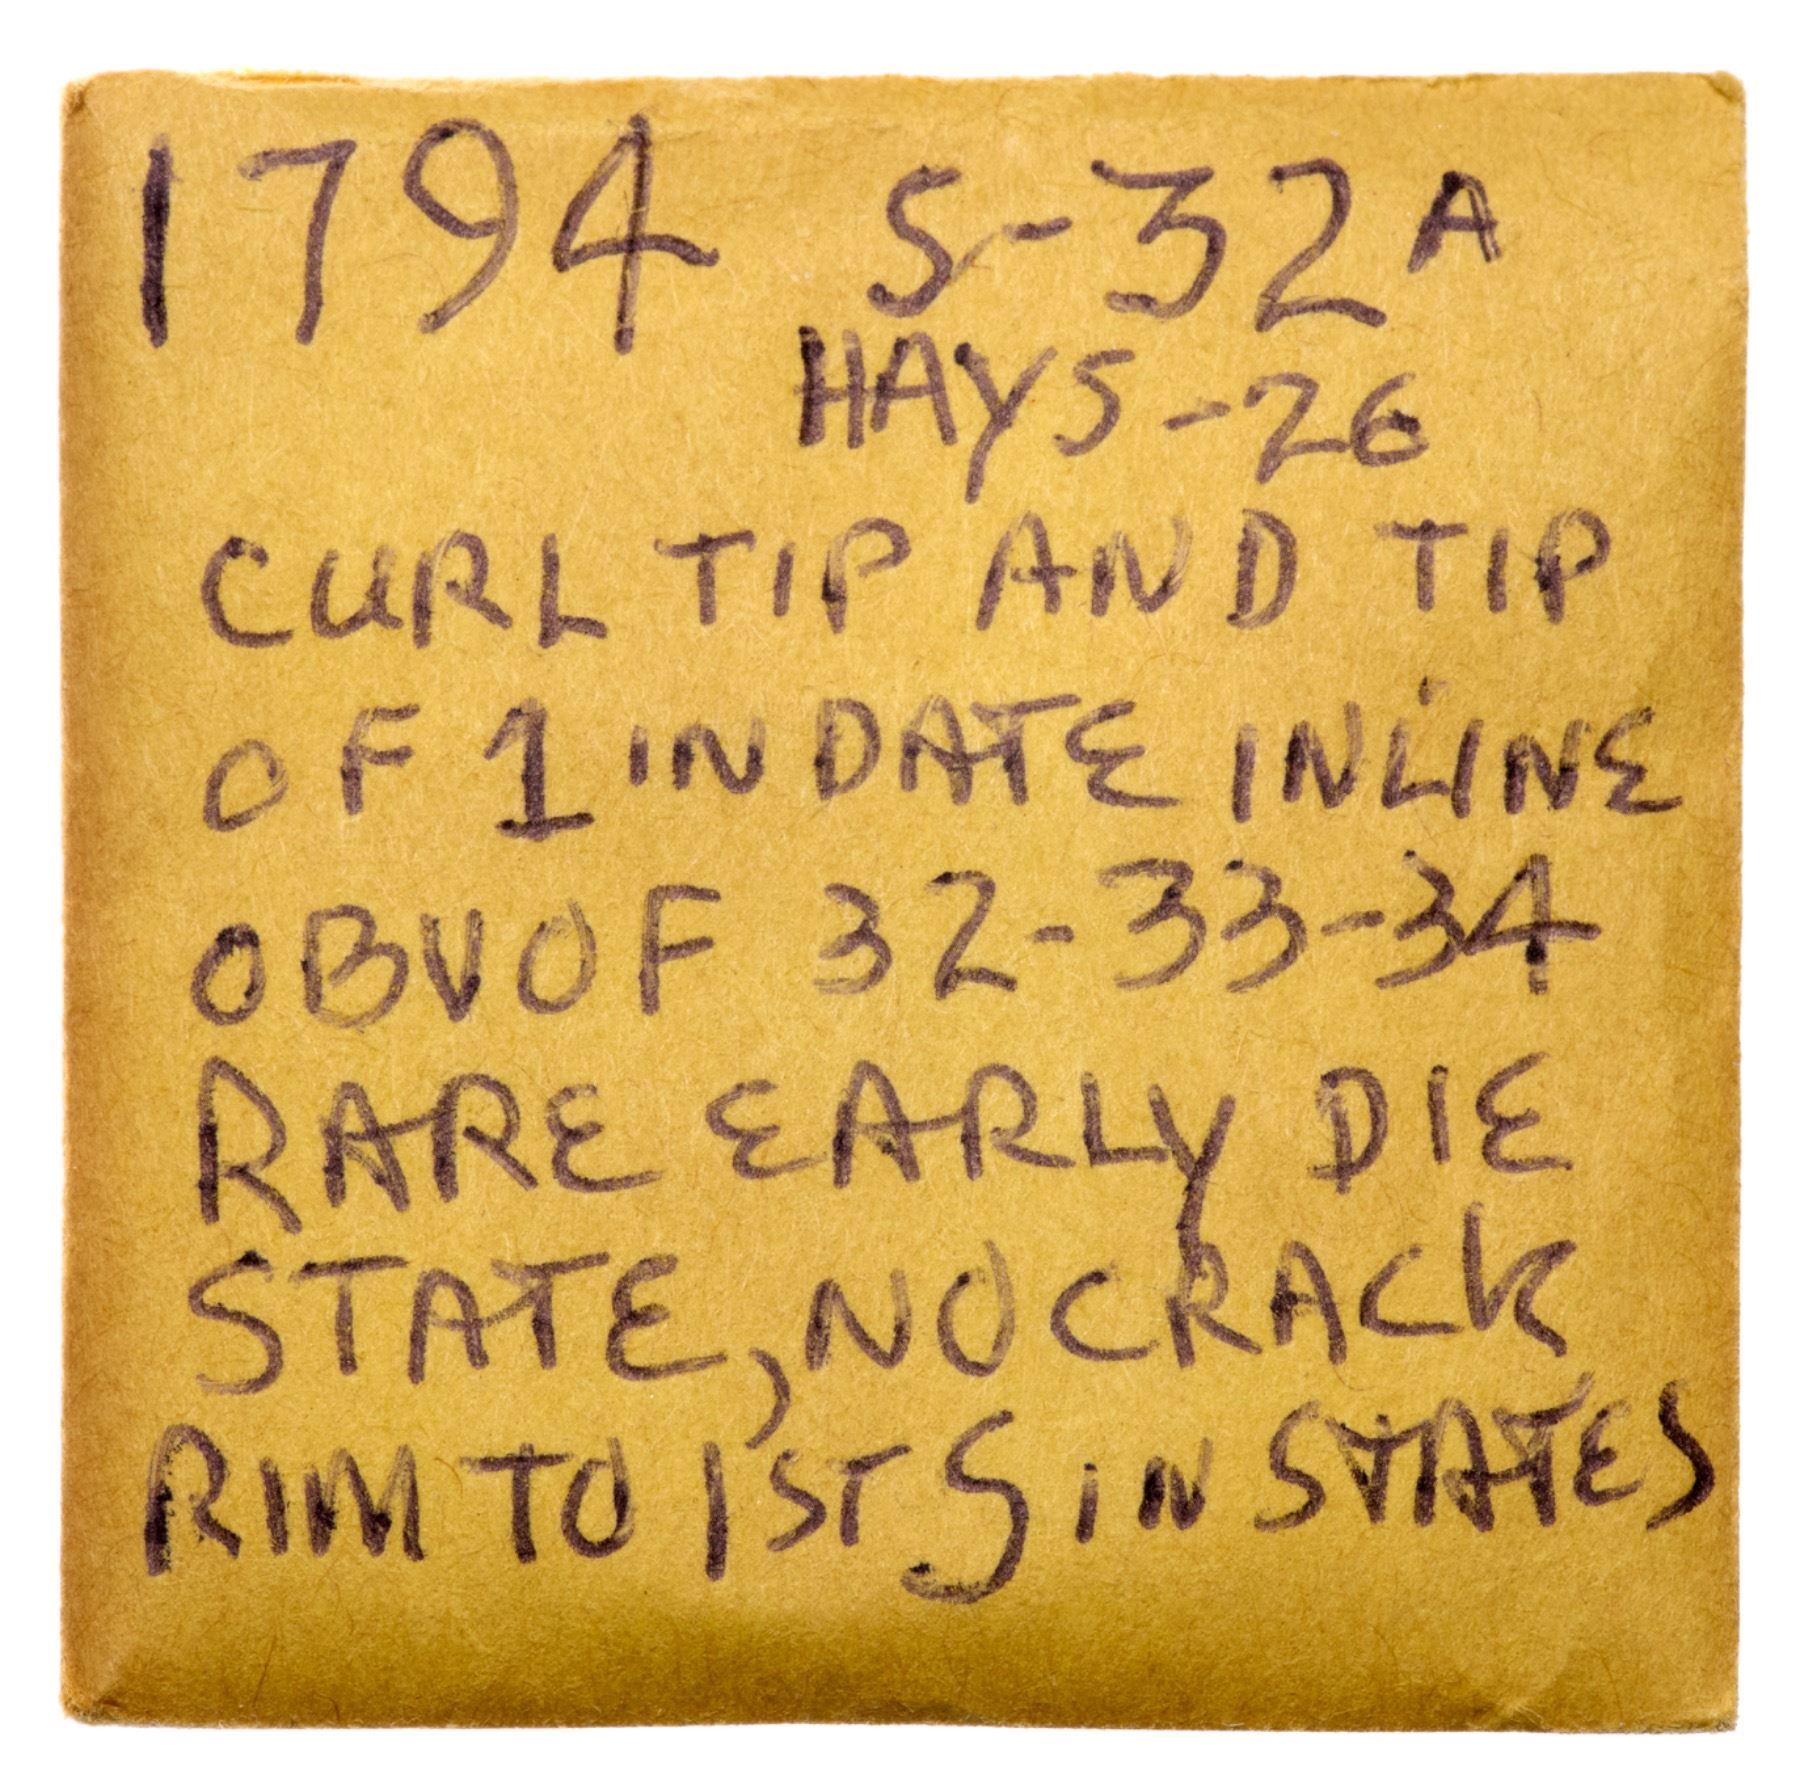 1794 S-32A
HAYS-26
CURL TIP AND TIP
OF 1 IN DATE INLINE
OBV OF 32-33-34
RARE EARLY DIE
STATE, NO CRACK
RIM TO 1ST S IN STATES